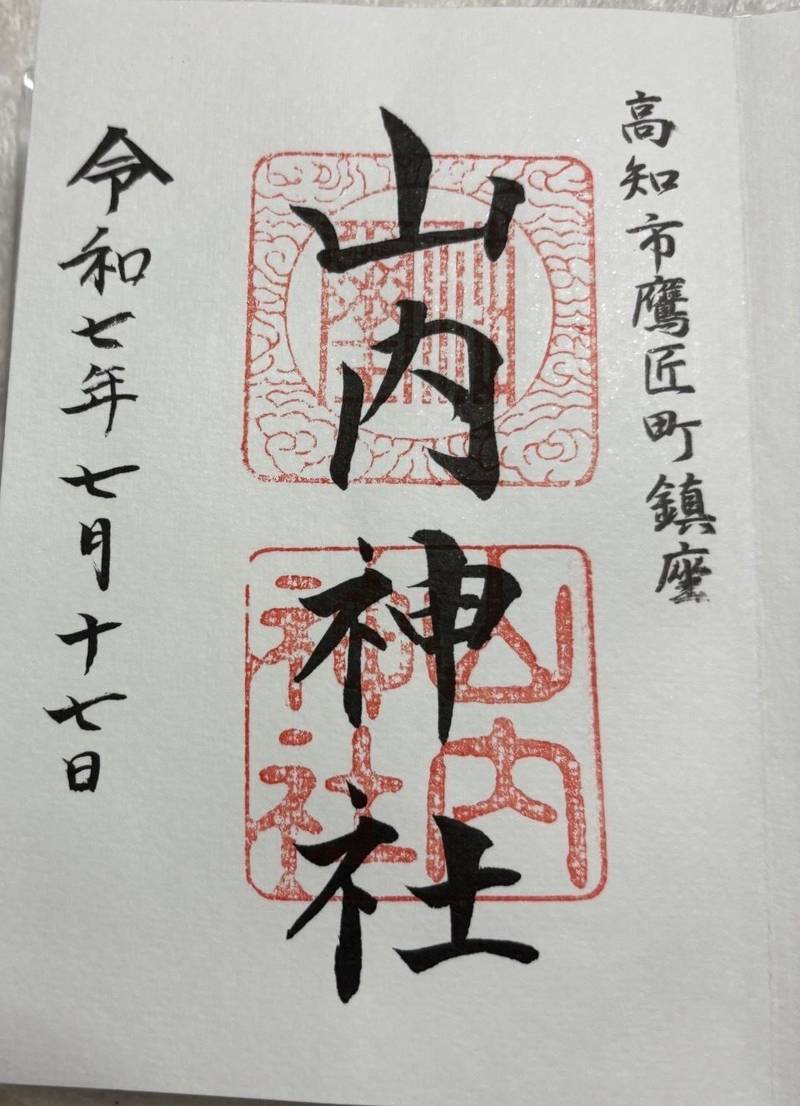 高知市鷹匠町鎮座
山内神社
山内神社
令和七年七月十七日